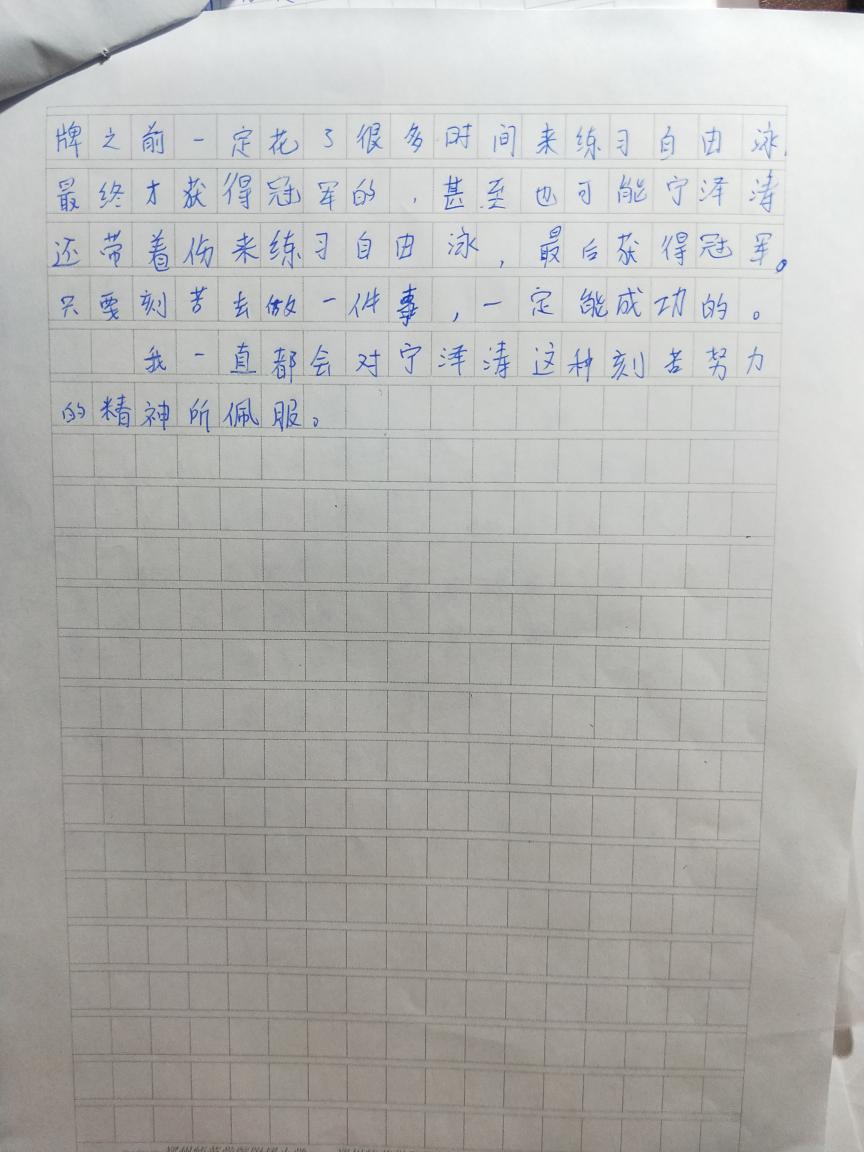 牌之前一定花了很多时间来练习自由泳,
最终才获得冠军的,甚至也可能宁泽涛
还带着伤来练习自由泳,最后获得冠军。
只要刻苦去做一件事,一定能成功的。
我一直都会对宁泽涛这种刻苦努力
的精神所佩服。